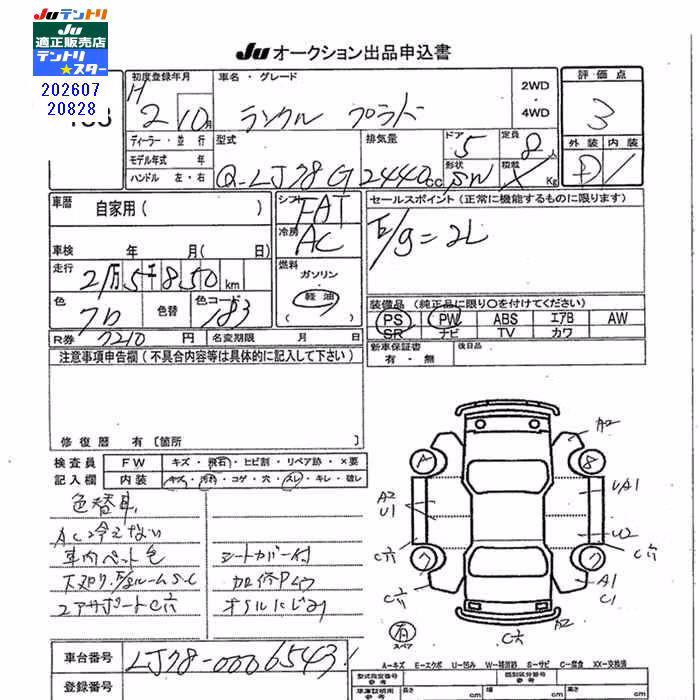 Juテントリ
Ju
適正販売店
テントリ
★スター
202607
20828
Ju オークション出品申込書
初度登録年月
H 2 10月
車名・グレード
ランクル プラド
2WD
・
4WD
評価点
3
外装 内装
D
ディーラー・並行
モデル年式 年
ハンドル 左・右
型式
Q-LJ78G
排気量
2440cc
ドア
5
形状
SW
定員
8人
積載
Kg
車歴
自家用( )
車検 年 月( 日)
走行
2万5千850km
色
色替
色コード
183
R券 7210円
名変期限 月 日
シフト
FAT
冷房
AC
燃料
ガソリン
軽油
セールスポイント(正常に機能するものに限ります)
E/g=2L
装備品(純正品に限り〇を付けてください)
PS PW ABS エアB AW
SR ナビ TV カワ
新車保証書
有・無
後日品
注意事項申告欄(不具合内容等は具体的に記入して下さい)
修復歴 有〔箇所 〕
検査員
記入欄
FW キズ・飛石・ヒビ割・リペア跡・×要
内装 キズ・汚れ・コゲ・穴・スレ・キレ・破レ
色替車
AC冷えない
シートカバー付
オイルにじみ
A2
A
8
A2
U1
UA1
U2
A1
C1
A2
有
スペア
車台番号 LJ78-0006543
登録番号
A-キズ E-エクボ U-凹み W-補修跡 S-サビ C-腐食 XX-交換済
型式指定番号
参考
類別区分番号
参考
車庫証明用
参考
長さ cm
幅 cm
高さ cm